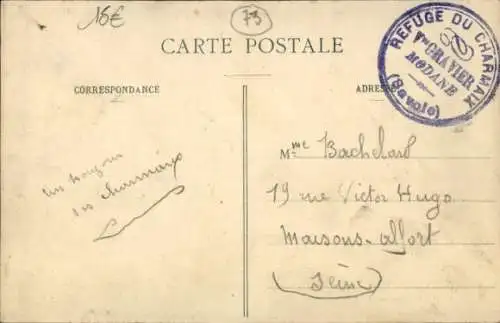 15€
73
CARTE POSTALE
CORRESPONDANCE
ADRESSE
REFUGE DU CHARMAIX
Vve GRAVIER
MODANE
(Savoie)
Mme Bachelard
19 rue Victor Hugo
Maisons-Alfort
(Seine)